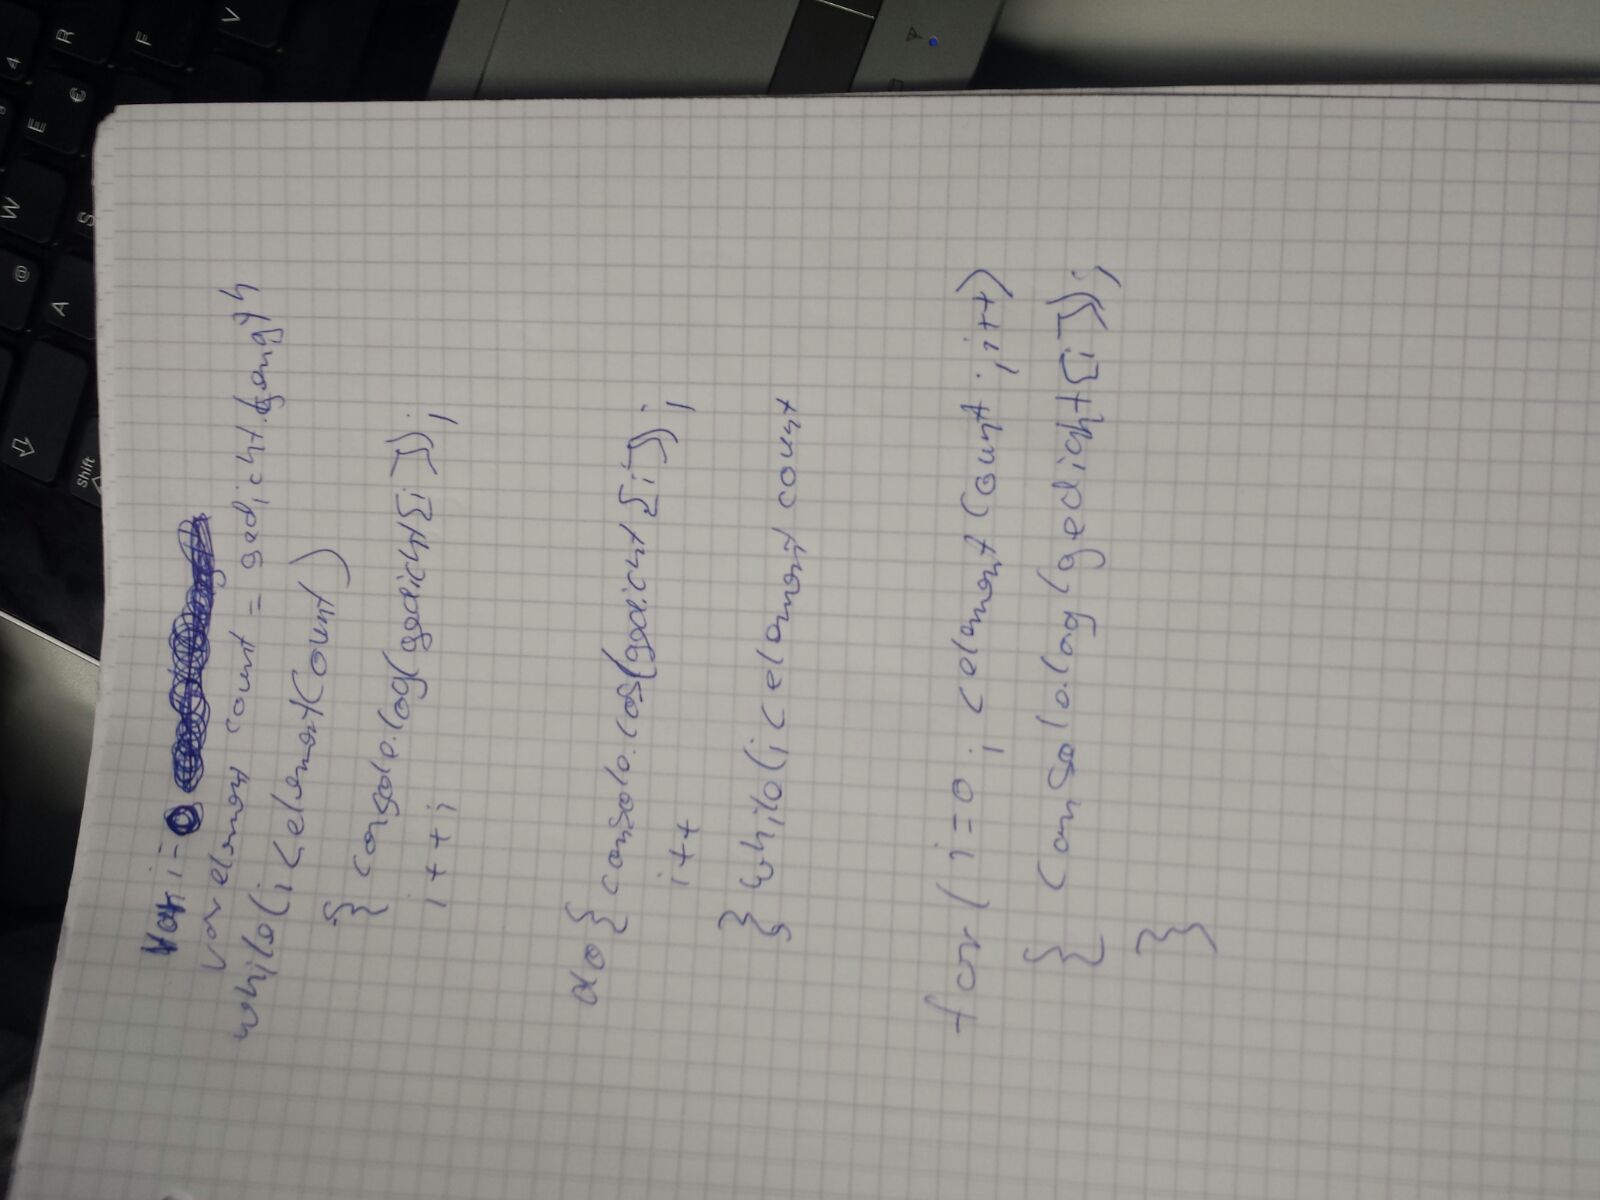 var i=0
var element count = gedicht.length
while(i<elementCount)
{ console.log(gedicht[i]);
i++;
do{ console.log(gedicht[i]);
i++
} while(i<element count
for(i=0; i<elementCount; i++)
{ console.log(gedicht[i]);
}
4
R
F
V
E
€
W
S
@
A
Shift